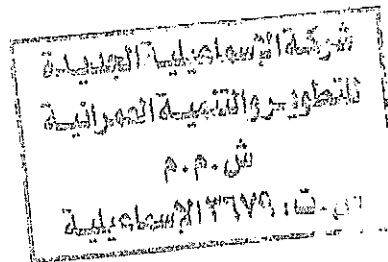 شركة الإسماعيلية الجديدة
للتطوير والتنمية العمرانية
ش.م.م
س.ت. ١٣٦٧٩ الإسماعيلية